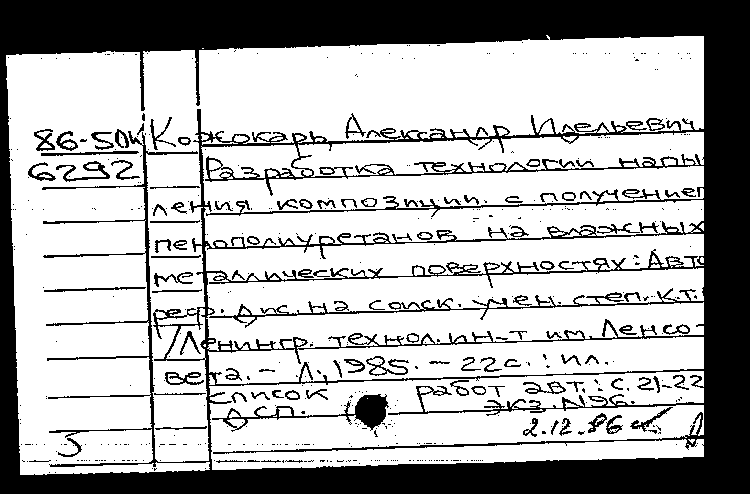 86-50к Кожокарь, Александр Идельевич.
6292 Разработка технологии напы-
ления композиции с получением
пенополиуретанов на влажных
металлических поверхностях: Авто
реф. дис. на соиск. учен. степ. к.т.
/Ленингр. технол. ин-т им. Ленсо-
вета. - Л., 1985. - 22 с. : ил.
список работ авт.: с. 21-22
Дсп. экз. N96.
2.12.86
5